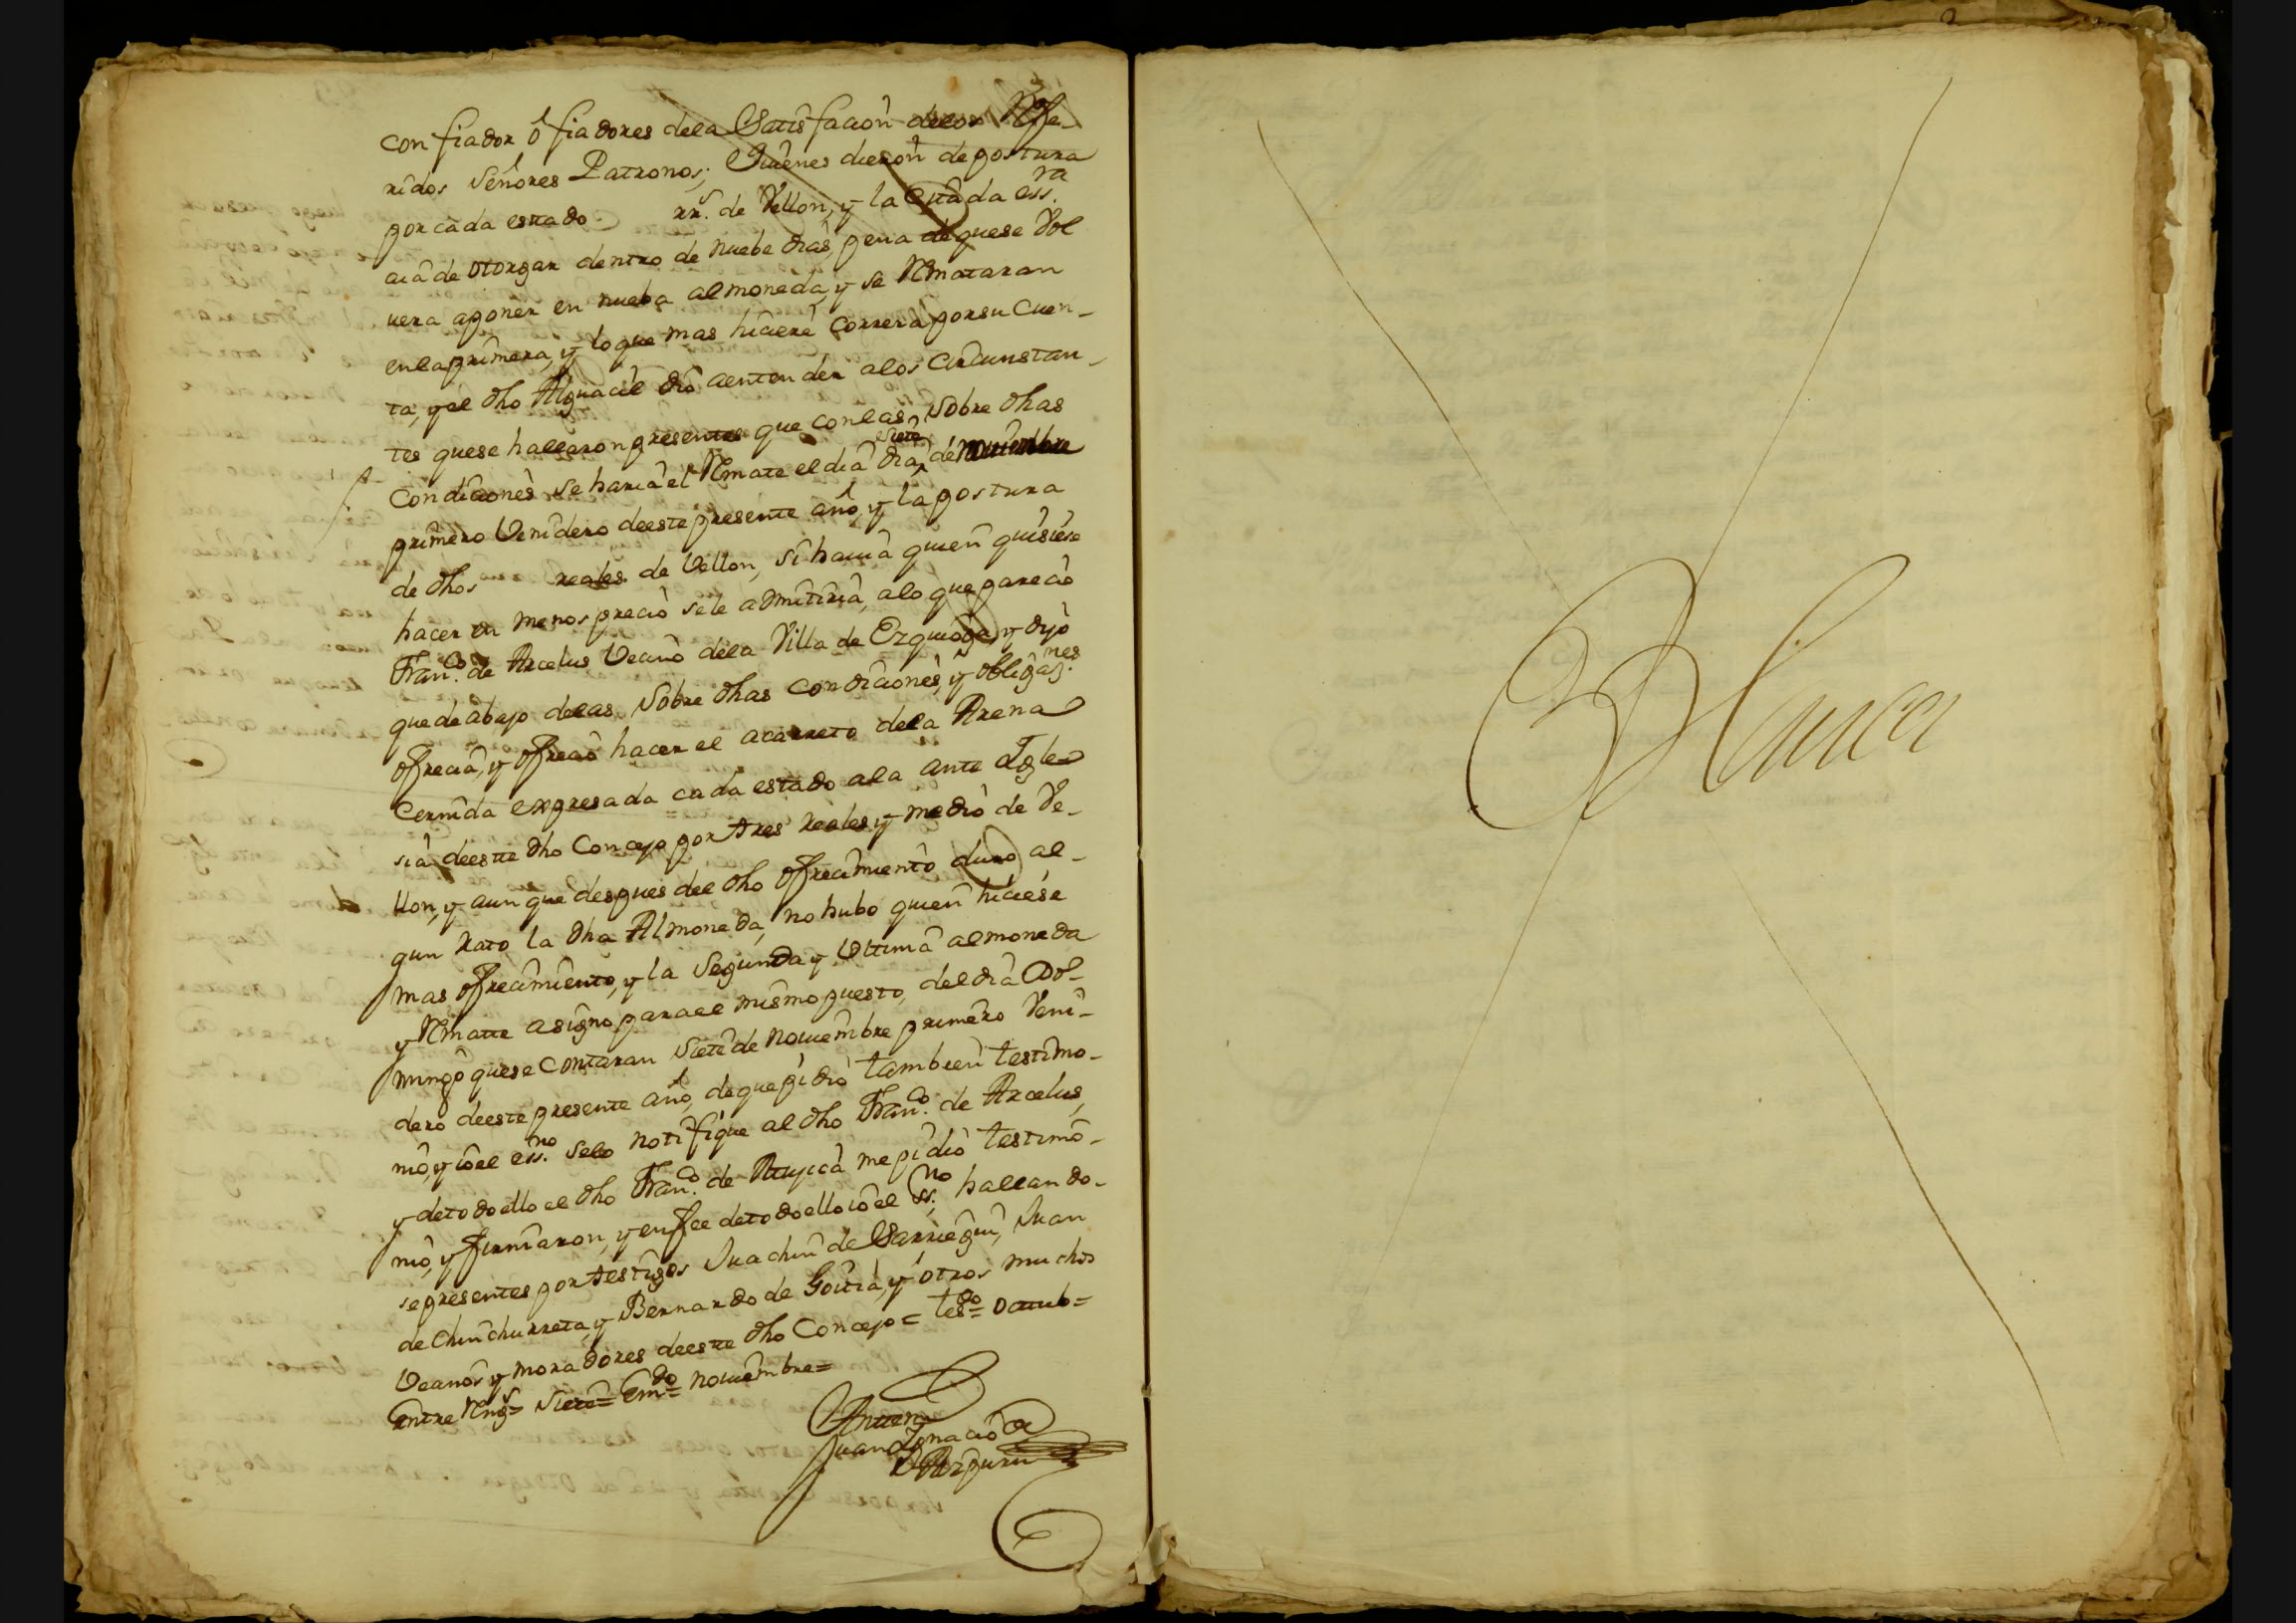 con fiador ô fiadores dela Satisfacion delos Refe-
ridos Señores Patronos; Quienes dieron de postura
por cada estado rr.s de Vellon, y la Citada ess.ra
aiâ de otorgar dentro de nuebe dias, pena de quese Vol
uera aponer en nueba almoneda, y se Remataran
enla primera, y lo que mas hiciere correra porsu Cuen-
ta, y el dho Alguacil dio aentender alos Circunstan-
tes quese hallaron presentes que conlas Sobre dhas
Condiciones se haria el Remate el dia dia siete de Nouiembre
primero Venidero deeste presente año, y la postura
de dhos reales de Vellon, si hauia quien quisiese
hacer en menos precio sele admitiria, alo que parecio
Fran.co de Arcelus Vecino dela Villa de Ezquioga, y dijo
que deabajo delas Sobre dhas Condiciones, y obligaz.nes
ofrecia, y ofrecio hacer el acarreto dela Arena
Cernida expresada cada estado ala ante Igle-
sia deeste dho Concejo por tres reales y medio de Ve-
llon, y aun que despues del dho ofrecimiento duro al-
gun rato la dha Almoneda, no hubo quien hiciese
mas ofrecimiento, y la Segunda y Ultima almoneda
y Remate asigno parael mismo puesto, del dia Do-
mingo quese Contaran Siete de Nouiembre primero Veni-
dero deeste presente año, deque pidio tambien testimo-
nio, y io el ess.no selo notifique al dho Fran.co de Arcelus,
y detodo ello el dho Fran.co de me pidio testimo-
nio, y firmaron, y enfee detodo ello io el ss.no hallando-
se presentes por testigos Juachin de Garriegui, Juan
de Chinchurreta, y Bernardo de Goitia, y otros muchos
Vecinos y moradores deeste dho Concejo = tes.do = octub =
Entre Reng.s = Siete = Em.do = nouiembre =
Antemi
Juan Ignacio de
Azpuru
Blanca